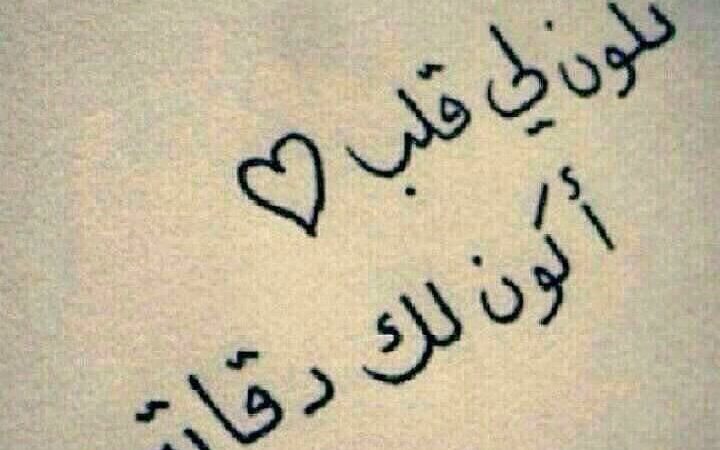 تكون لي قلب
أكون لك دقاته